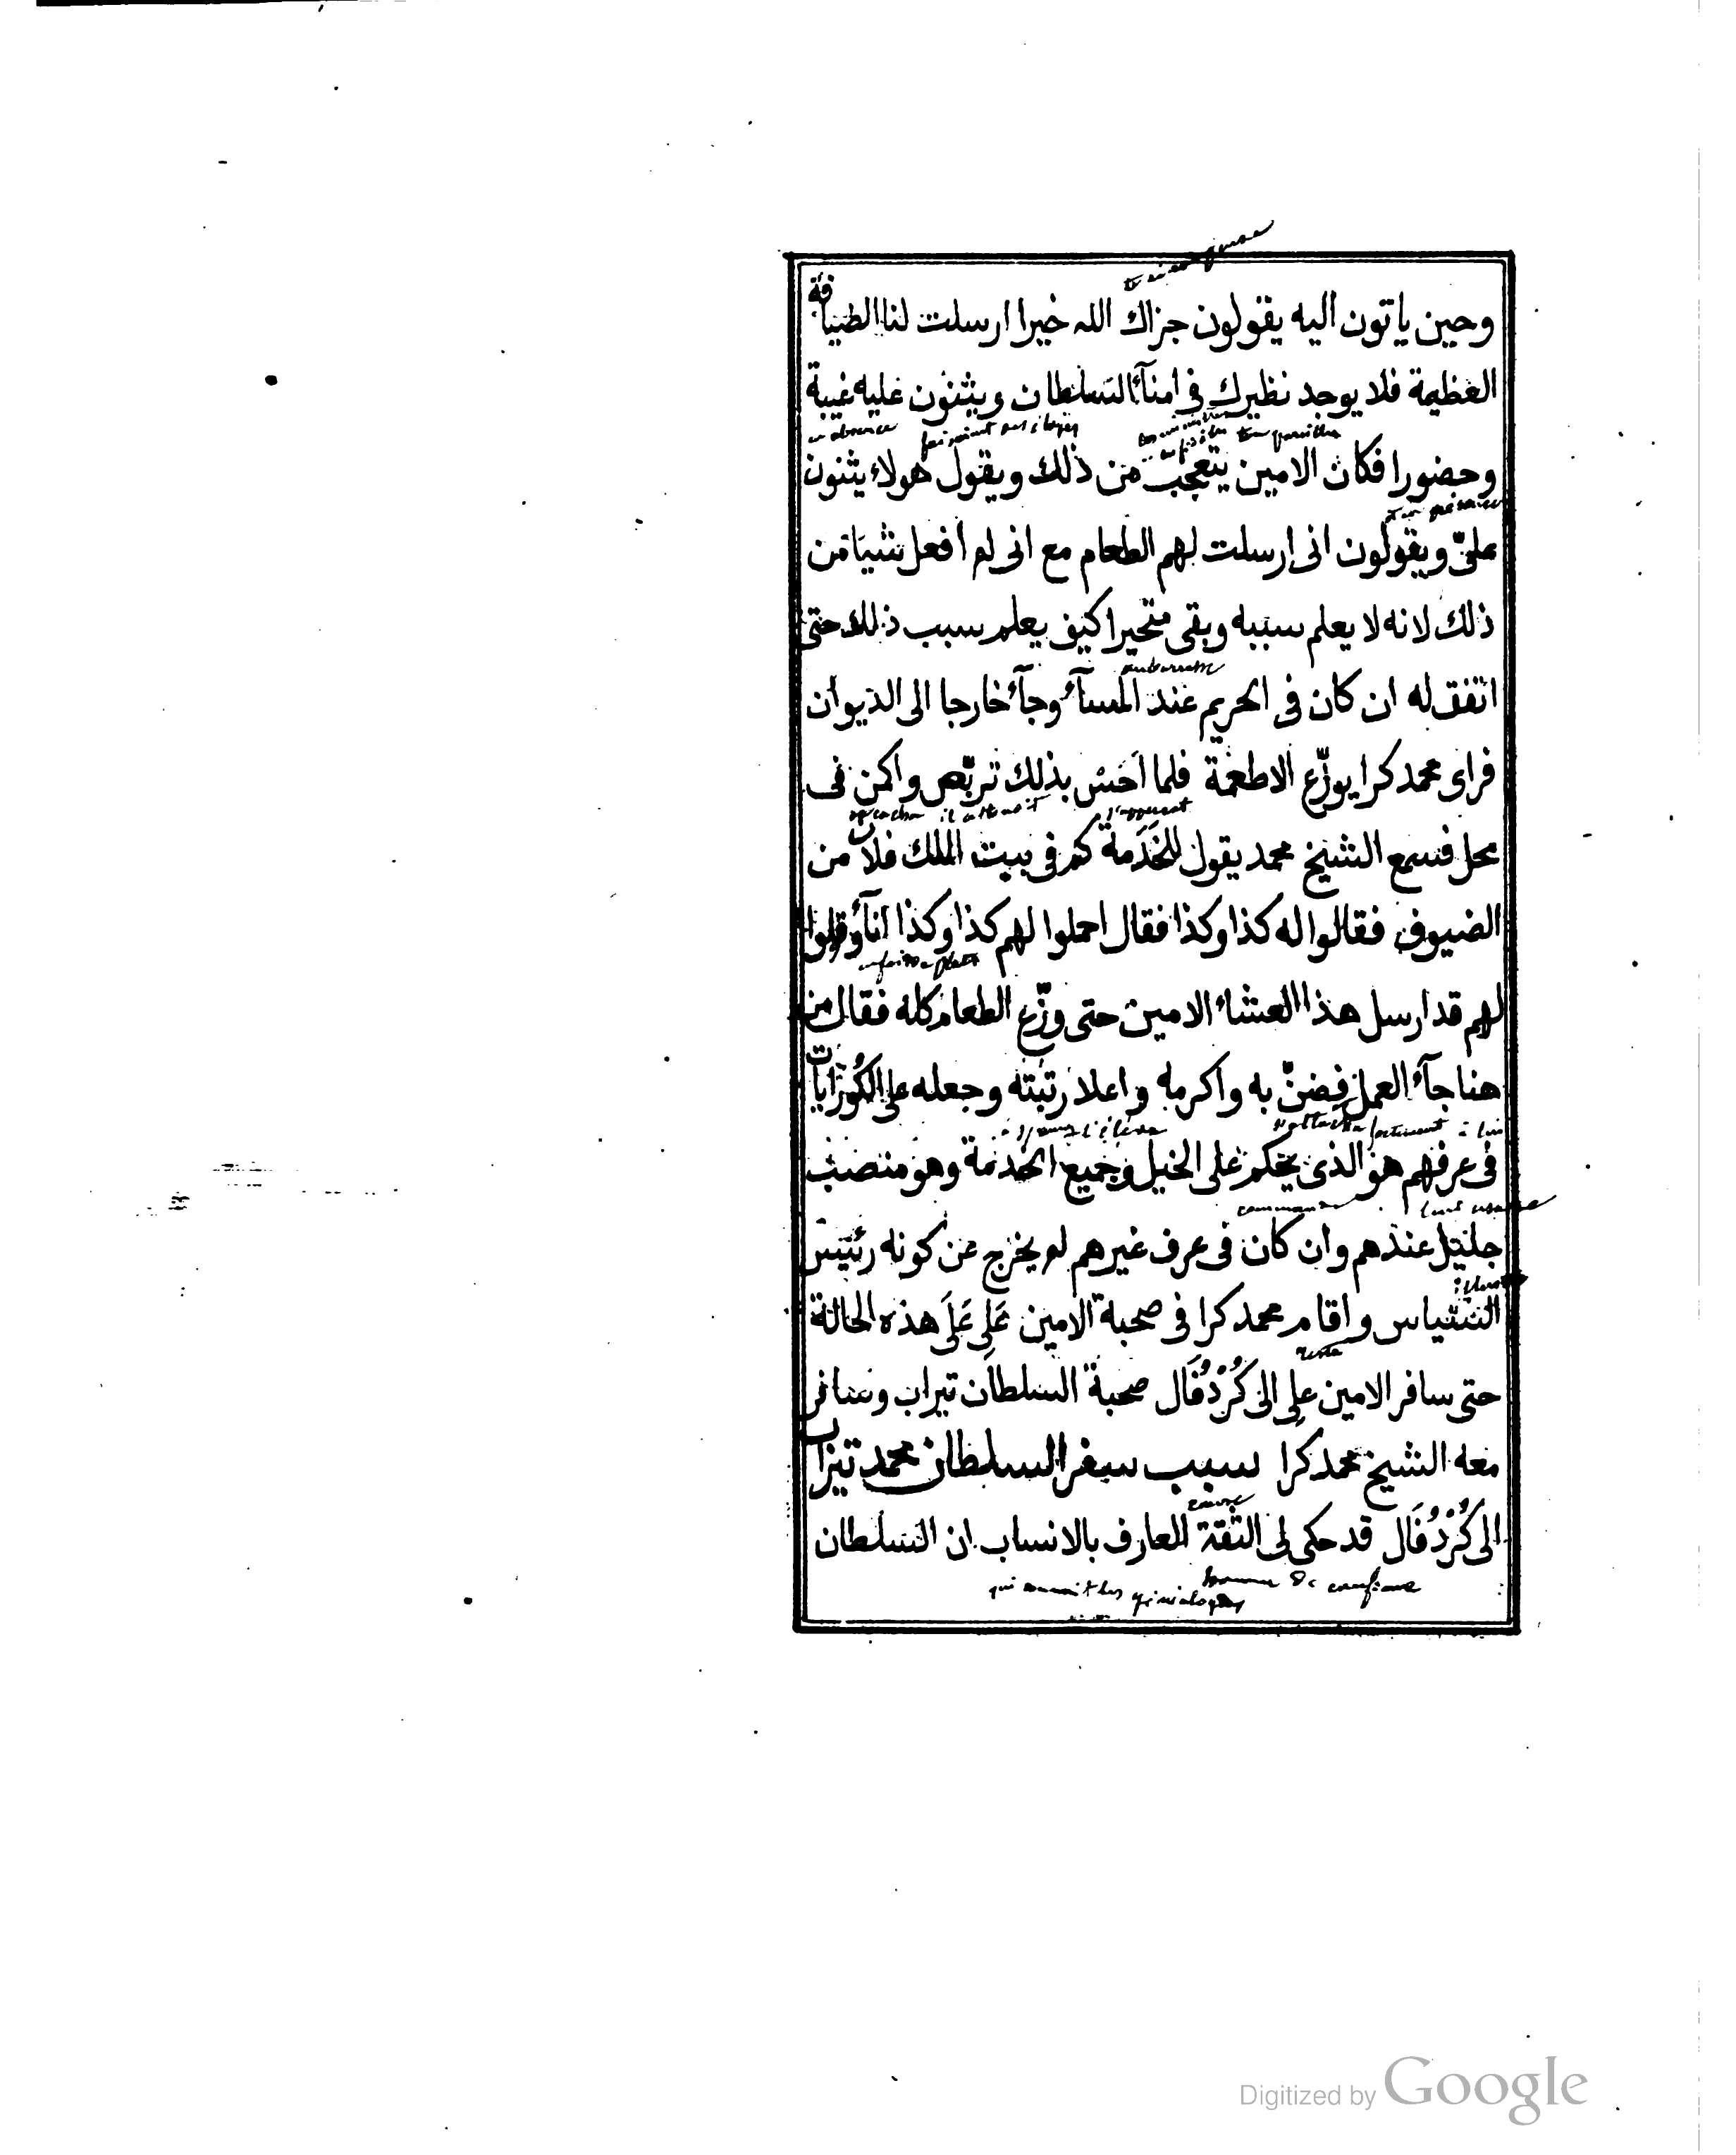 وحين ياتون اليه يقولون جزاك الله خيرا ارسلت لنا الضيافة
العظيمة فلا يوجد نظيرك فى امنآء السلطان ويثنون عليه غيبة
en absence faisaient ses éloges
وحضورا فكان الامين يتعجب من ذلك ويقول هولاء يثنون
علىّ ويقولون انى ارسلت لهم الطعام مع انى لم افعل شيا من
ذلك لانه لا يعلم سببه وبقى متحيرا كيف يعلم سبب ذلك حتى
embarrassé
اتفق له ان كان فى الحريم عند المسآء وجآء خارجا الى الديوان
فراى محمد كرا يوزّع الاطعمة فلما احَسّ بذلك تربّص واكمن فى
se cacha il attendit
محل فسمع الشيخ محمد يقول للخَدَمة كم فى بيت الملك فلان من
الضيوف فقالوا له كذا وكذا فقال احملوا لهم كذا وكذا انآء وقولوا
لهم قد ارسل هذا العشاء الامين حتى وزّع الطعام كله فقال من
هنا جآء العمل فضنّ به واكرمه واعلا رتبته وجعله على الكُورَايات
s'attacha fortement à lui
فى عرفهم هو الذى يحكم على الخيل وجميع الخدمة وهو منصب
commande leur usage
جليل عندهم وان كان فى عرف غيرهم لم يخرج عن كونه رئيس
السّيّاس واقام محمد كرا فى صحبة الامين عَلِى عَلَى هذه الحالة
resta
حتى سافر الامين على الى كُرْدُفَال صحبة السلطان تيراب وسافر
معه الشيخ محمد كرا سبب سفر السلطان محمد تيراب
الى كُرْدُفَال قد حكى لى الثقة العارف بالانساب ان السلطان
homme de confiance
qui connait les généalogies
Digitized by Google